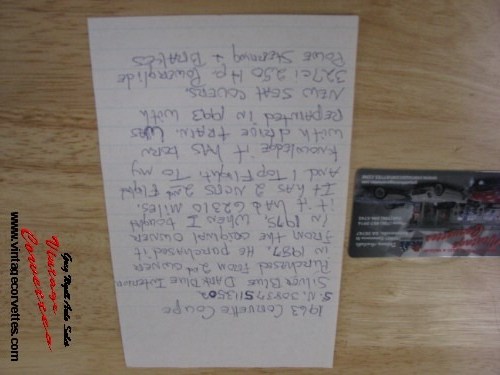 1963 Corvette Coupe
S.N. 30837S113502
Silver Blue Dark Blue Interior
Purchased from 2nd owner
in 1987. He purchased it
from the original owner
in 1975. When I bought
it it had 62310 miles.
It has 2 NCRS 2nd Flight
And 1 Top Flight. To my
knowledge it has been
with drive train. Was
repainted in 1993 with
new seat covers.
327ci 250 H.p. Powerglide
Powe Steering + Brakes
Greg Wyatt Auto Sales
Vintage
Corvettes
www.vintagecorvettes.com